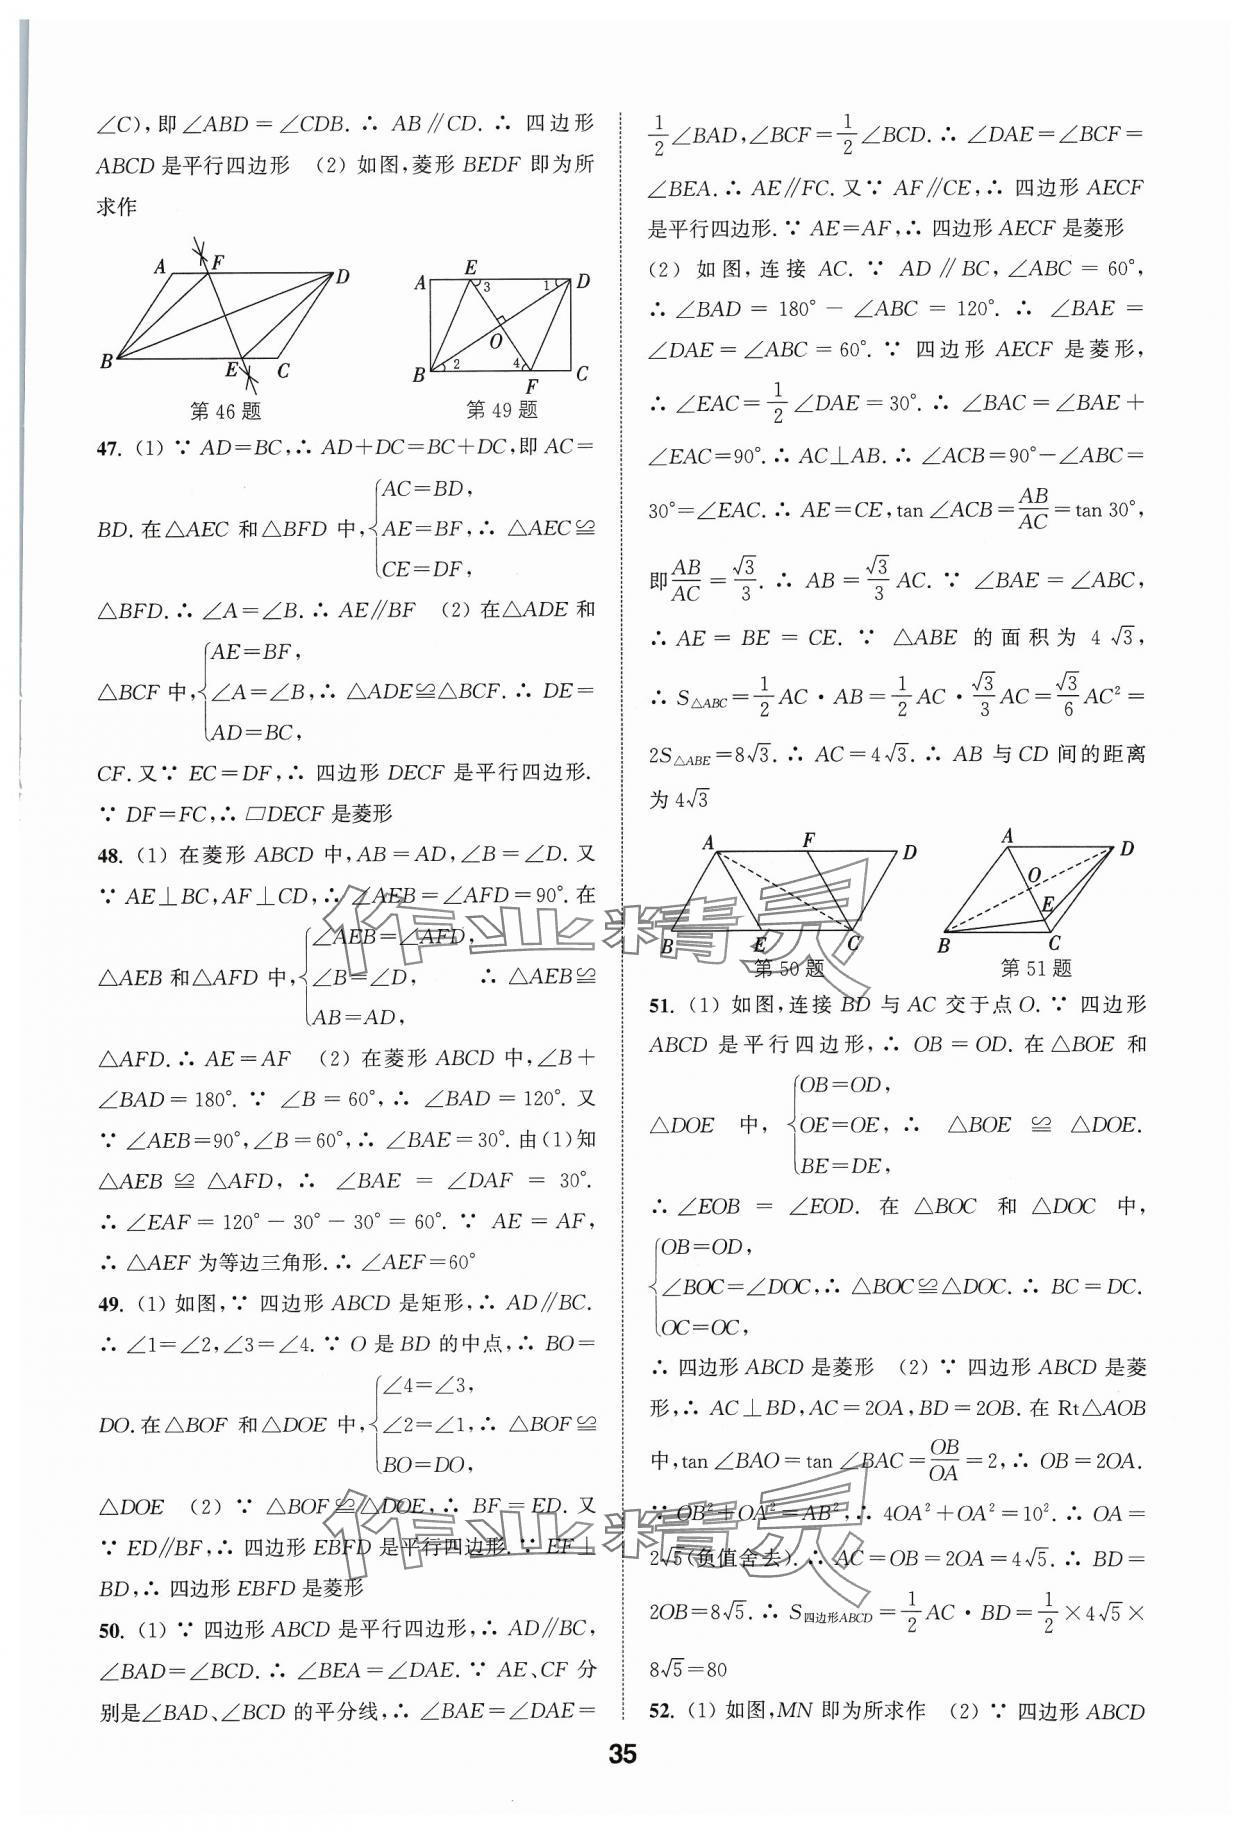 ∠C),即∠ABD=∠CDB.∴ AB∥CD.∴ 四边形
ABCD 是平行四边形 (2) 如图,菱形 BEDF 即为所
求作
A F D
B E C
第 46 题
A E D
3 1
O
B 2 4 F C
第 49 题
47. (1) ∵ AD=BC,∴ AD+DC=BC+DC,即 AC=
BD. 在△AEC 和△BFD 中,{AC=BD, AE=BF, CE=DF, ∴ △AEC≌
△BFD.∴ ∠A=∠B.∴ AE∥BF (2) 在△ADE 和
△BCF 中,{AE=BF, ∠A=∠B, AD=BC, ∴ △ADE≌△BCF.∴ DE=
CF. 又∵ EC=DF,∴ 四边形 DECF 是平行四边形.
∵ DF=FC,∴ □DECF 是菱形
48. (1) 在菱形 ABCD 中,AB=AD,∠B=∠D. 又
∵ AE⊥BC,AF⊥CD,∴ ∠AEB=∠AFD=90°. 在
△AEB 和△AFD 中,{∠AEB=∠AFD, ∠B=∠D, AB=AD, ∴ △AEB≌
△AFD.∴ AE=AF (2) 在菱形 ABCD 中,∠B+
∠BAD=180°.∵ ∠B=60°,∴ ∠BAD=120°. 又
∵ ∠AEB=90°,∠B=60°,∴ ∠BAE=30°. 由(1)知
△AEB ≌ △AFD,∴ ∠BAE = ∠DAF = 30°.
∴ ∠EAF=120°-30°-30°=60°.∵ AE=AF,
∴ △AEF 为等边三角形.∴ ∠AEF=60°
49. (1) 如图,∵ 四边形 ABCD 是矩形,∴ AD∥BC.
∴ ∠1=∠2,∠3=∠4.∵ O 是 BD 的中点,∴ BO=
DO. 在△BOF 和△DOE 中,{∠4=∠3, ∠2=∠1, BO=DO, ∴ △BOF≌
△DOE (2) ∵ △BOF≌△DOE,∴ BF=ED. 又
∵ ED∥BF,∴ 四边形 EBFD 是平行四边形.∵ EF⊥
BD,∴ 四边形 EBFD 是菱形
50. (1) ∵ 四边形 ABCD 是平行四边形,∴ AD∥BC,
∠BAD=∠BCD.∴ ∠BEA=∠DAE.∵ AE、CF 分
别是∠BAD、∠BCD 的平分线,∴ ∠BAE=∠DAE=
1/2∠BAD,∠BCF=1/2∠BCD.∴ ∠DAE=∠BCF=
∠BEA.∴ AE∥FC. 又∵ AF∥CE,∴ 四边形 AECF
是平行四边形.∵ AE=AF,∴ 四边形 AECF 是菱形
(2) 如图,连接 AC.∵ AD∥BC,∠ABC=60°,
∴ ∠BAD = 180° - ∠ABC = 120°.∴ ∠BAE =
∠DAE=∠ABC=60°.∵ 四边形 AECF 是菱形,
∴ ∠EAC=1/2∠DAE=30°.∴ ∠BAC=∠BAE+
∠EAC=90°.∴ AC⊥AB.∴ ∠ACB=90°-∠ABC=
30°=∠EAC.∴ AE=CE,tan∠ACB=AB/AC=tan 30°,
即AB/AC=√3/3.∴ AB=√3/3 AC.∵ ∠BAE=∠ABC,
∴ AE=BE=CE.∵ △ABE 的面积为 4√3,
∴ S△ABC=1/2 AC·AB=1/2 AC·√3/3 AC=√3/6 AC²=
2S△ABE=8√3.∴ AC=4√3.∴ AB 与 CD 间的距离
为 4√3
A F D
B E C
第 50 题
A D
O
E
B C
第 51 题
51. (1) 如图,连接 BD 与 AC 交于点 O.∵ 四边形
ABCD 是平行四边形,∴ OB=OD. 在△BOE 和
△DOE 中,{OB=OD, OE=OE, BE=DE, ∴ △BOE ≌ △DOE.
∴ ∠EOB = ∠EOD. 在 △BOC 和 △DOC 中,
{OB=OD, ∠BOC=∠DOC, OC=OC, ∴ △BOC≌△DOC.∴ BC=DC.
∴ 四边形 ABCD 是菱形 (2) ∵ 四边形 ABCD 是菱
形,∴ AC⊥BD,AC=2OA,BD=2OB. 在 Rt△AOB
中,tan∠BAO=tan∠BAC=OB/OA=2,∴ OB=2OA.
∵ OB²+OA²=AB²,∴ 4OA²+OA²=10².∴ OA=
2√5(负值舍去).∴ AC=OB=2OA=4√5.∴ BD=
2OB=8√5.∴ S四边形ABCD=1/2 AC·BD=1/2×4√5×
8√5=80
52. (1) 如图,MN 即为所求作 (2) ∵ 四边形 ABCD
35
作业精灵
作业精灵